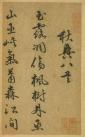 秋興八首
玉露凋傷楓樹林巫
山巫峽氣蕭森江間